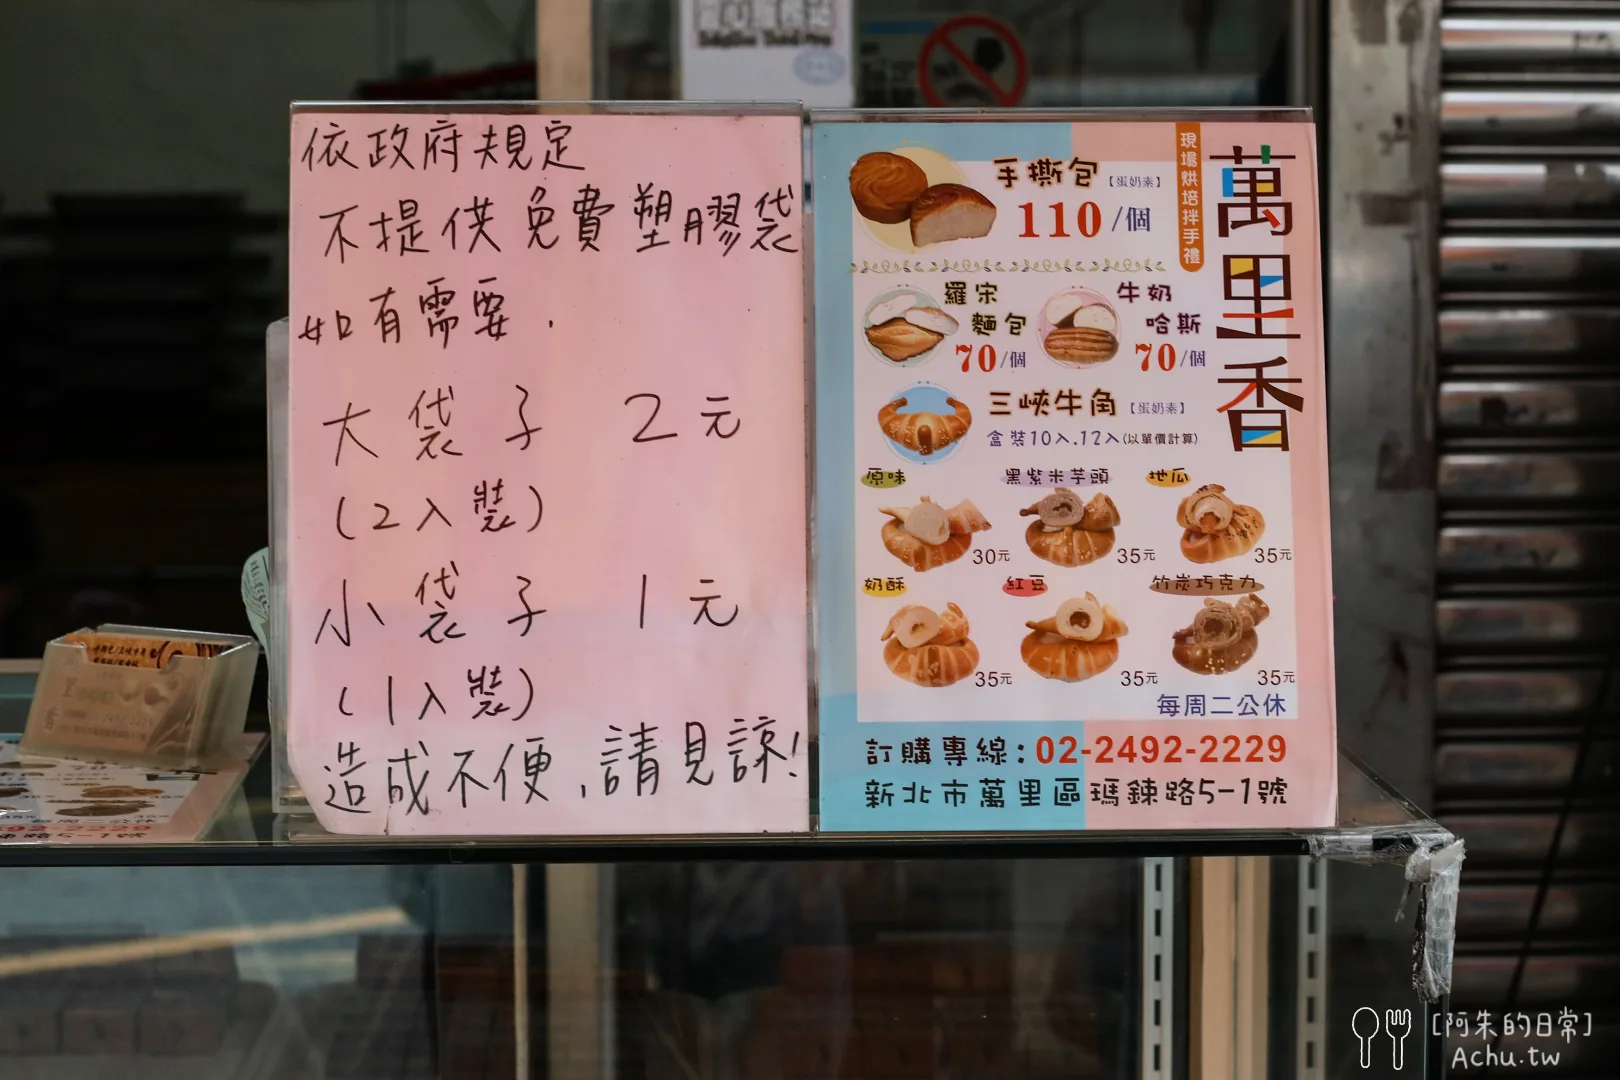 依政府規定
不提供免費塑膠袋
如有需要,
大袋子 2元
(2入裝)
小袋子 1元
(1入裝)
造成不便,請見諒!
萬里香
現場烘培拌手禮
手撕包【蛋奶素】
110/個
羅宋麵包
70/個
牛奶哈斯
70/個
三峽牛角【蛋奶素】
盒裝10入.12入(以單價計算)
原味
30元
黑紫米芋頭
35元
地瓜
35元
奶酥
35元
紅豆
35元
竹炭巧克力
35元
每周二公休
訂購專線:02-2492-2229
新北市萬里區瑪鋉路5-1號
[阿朱的日常]
Achu.tw